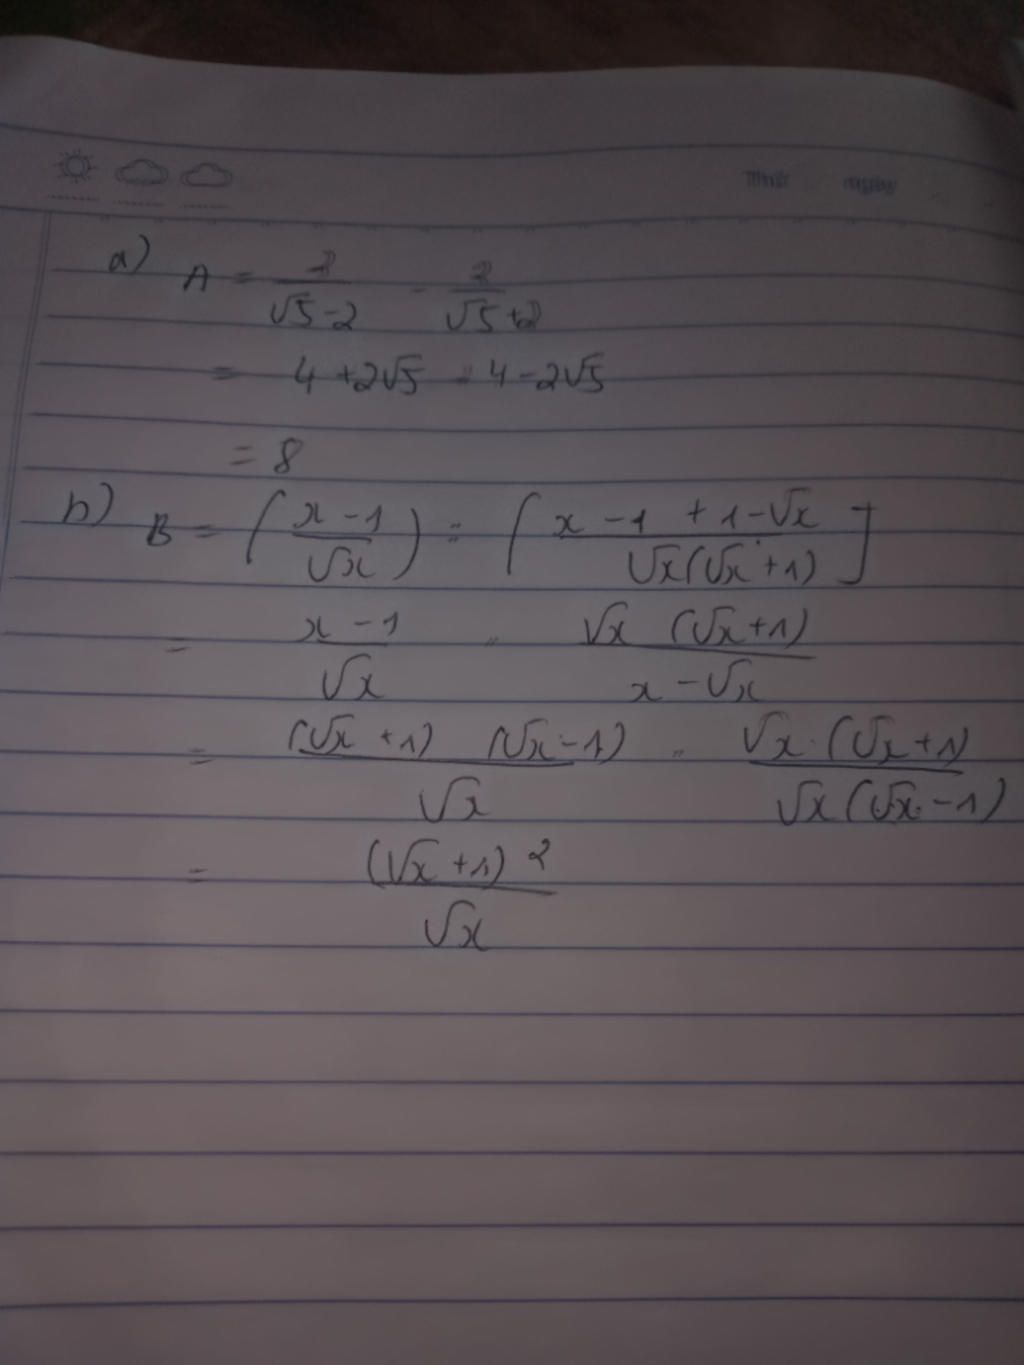 Thứ ngày
a) A = 2/(√5-2) - 2/(√5+2)
= 4+2√5 + 4-2√5
= 8
b) B = ((x-1)/√x) : [(x-1+1-√x)/(√x(√x+1))]
= (x-1)/√x . (√x (√x+1))/(x-√x)
= ((√x+1) (√x-1))/√x . (√x.(√x+1))/(√x(√x-1))
= (√x+1)²/√x